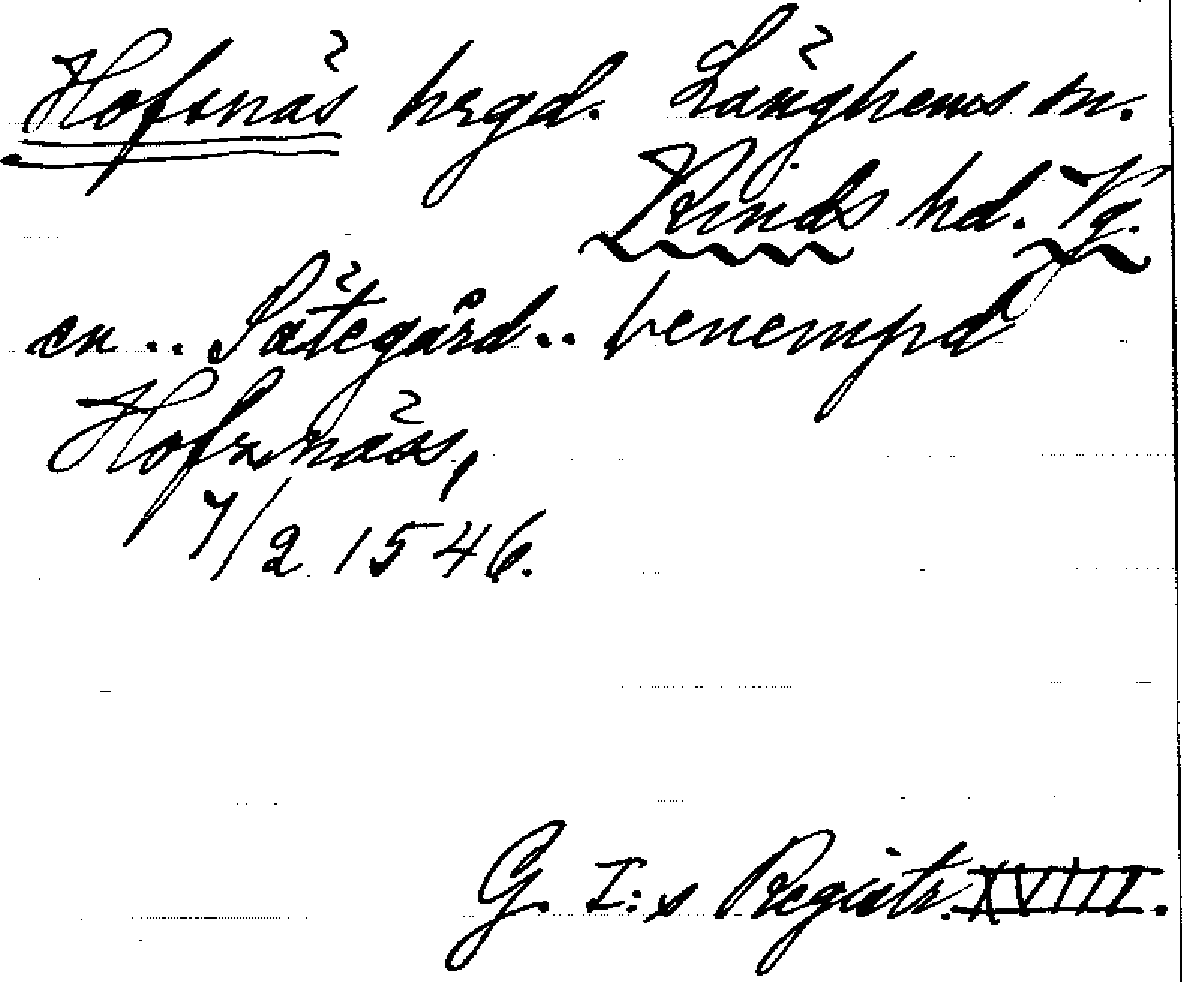 Hofsnäs hrgd. Länghems sn.
Kinds hd. Vg.
en .. Sätegård .. benempd
Hofsnääs,
7/2 1546.
G. I:s Registr. XVIII.